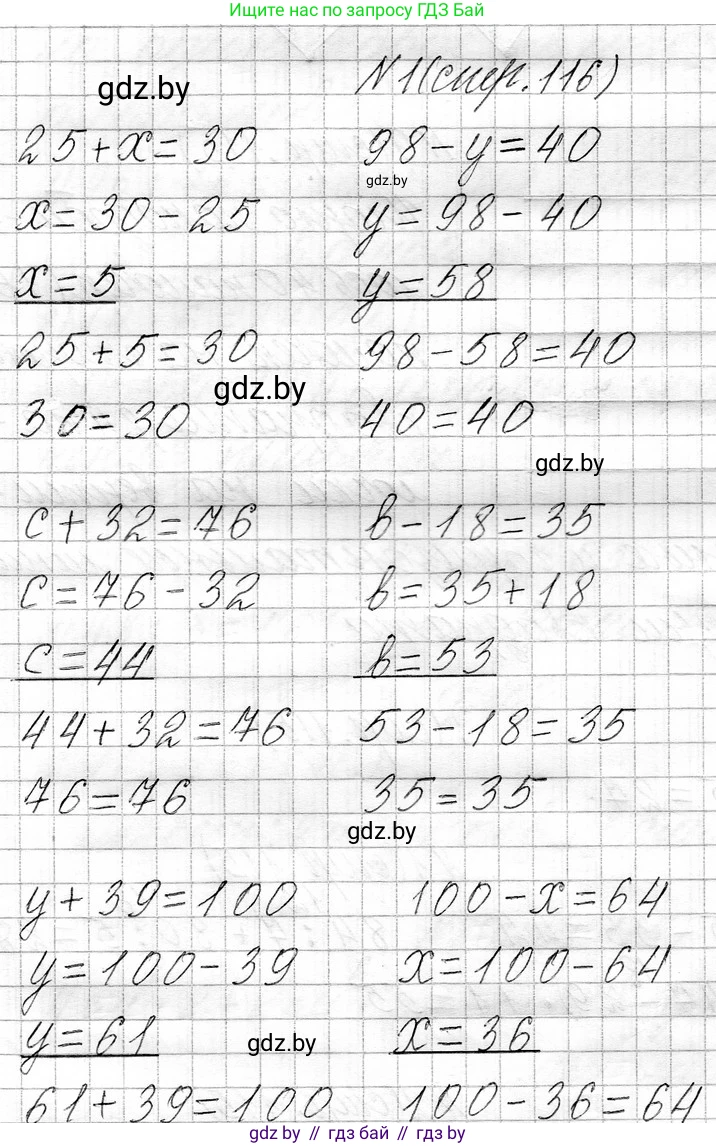 Ищите нас по запросу ГДЗ Бай
gdz.by
№1(стр.116)
25+x=30
98-y=40
gdz.by
x=30-25
y=98-40
x=5
y=58
25+5=30
98-58=40
gdz.by
30=30
40=40
gdz.by
c+32=76
в-18=35
c=76-32
в=35+18
c=44
в=53
44+32=76
53-18=35
76=76
35=35
gdz.by
y+39=100
100-x=64
y=100-39
x=100-64
y=61
x=36
gdz.by
61+39=100
100-36=64
gdz.by // гдз бай // гдз.by